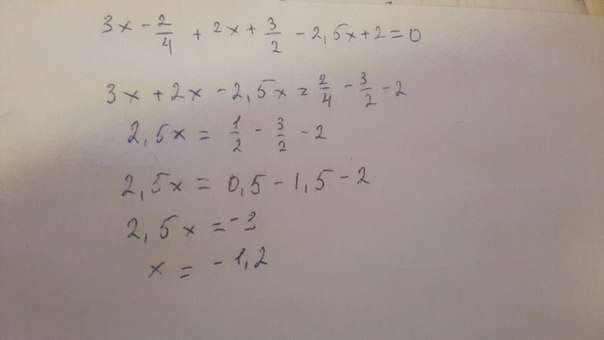 3x - 2/4 + 2x + 3/2 - 2,5x + 2 = 0
3x + 2x - 2,5x = 2/4 - 3/2 - 2
2,5x = 1/2 - 3/2 - 2
2,5x = 0,5 - 1,5 - 2
2,5x = -3
x = -1,2